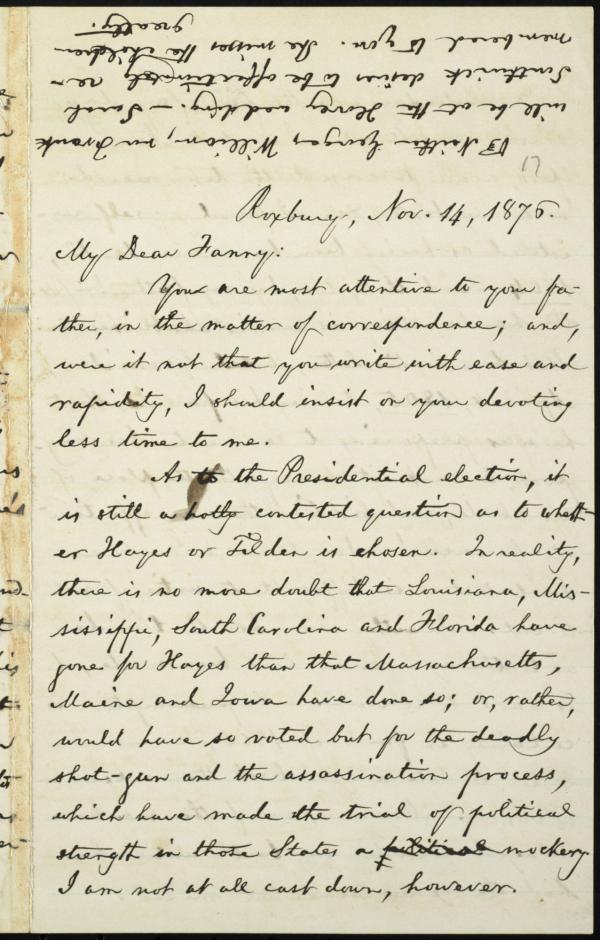 ☞ Neither Georges, William, nor Frank
will be at the Henry wedding. — Sarah
Southwick desires to be affectionately re-
membered to you. She misses the children
greatly.
17
Roxbury, Nov. 14, 1876.
My Dear Fanny:
Your are most attentive to your fa-
ther, in the matter of correspondence; and,
were it not that you write with ease and
rapidity, I should insist on your devoting
less time to me.
As to the Presidential election, it
is still a hotly contested question as to wheth-
er Hayes or Tilden is chosen. In reality,
there is no more doubt that Louisiana, Mis-
sissippi, South Carolina and Florida have
gone for Hayes than that Massachusetts,
Maine and Iowa have done so; or, rather,
would have so voted but for the deadly
shot-gun and the assassination process,
which have made the trial of political
strength in those States a political mockery.
I am not at all cast down, however.